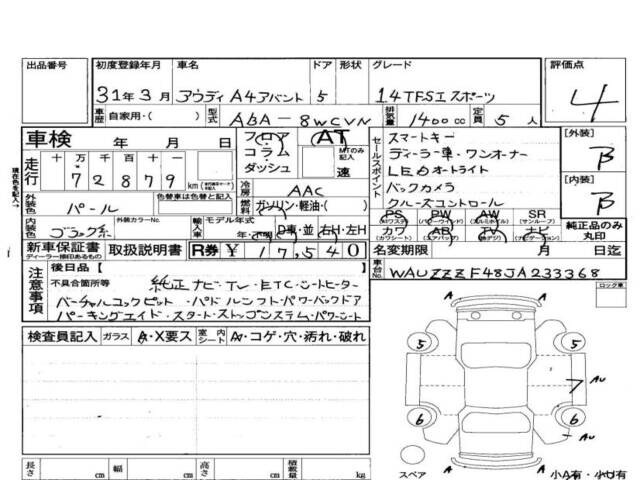 出品番号 初度登録年月 車名 ドア 形状 グレード 評価点
31年3月 アウディA4アバント 5 1.4TFSIスポーツ 4
車歴 自家用・( ) 型式 ABA-8WCVN 排気量 1400cc 定員 5人
車検 年 月 日 フロア コラム ダッシュ AT MTのみ記入 速
走行 十 万 千 百 十 72879 km
冷房 AAC
外装色 パール 色替車は色替と記入 燃料 ガソリン・軽油・( )
内装色 ブラック系 外装カラーNo. 輸入車 モデル年式 年 D車・並 右H・左H
セールスポイント
スマートキー
ディーラー車・ワンオーナー
LEDオートライト
バックカメラ
クルーズコントロール
[外装] B
[内装] B
PS PW AW SR
(パワステ) (パワーウインド) (アルミホイル) (サンルーフ)
カワ AB TV ナビ
(カワシート) (エアバッグ) (地デジ) (ナビゲーション)
純正品のみ丸印
新車保証書 取扱説明書 R券 ¥17,540
ディーラー捺印あるもの
名変期限 月 日迄
現在色を記入→
車台No. WAUZZZF48JA233368
注意事項
後日品【
不具合箇所等 純正ナビ・TV・ETC・シートヒーター
バーチャルコックピット・パドルシフト・パワーバックドア
パーキングエイド・スタートストップシステム・パワーシート
ロック車
検査員記入 ガラス A・X要ス 室内シート A・コゲ・穴・汚れ・破れ
A A
5 5
7 AU
6 6
AU
A A
スペア
長さ cm 幅 cm 高さ cm 積載量 kg
小A有・小U有